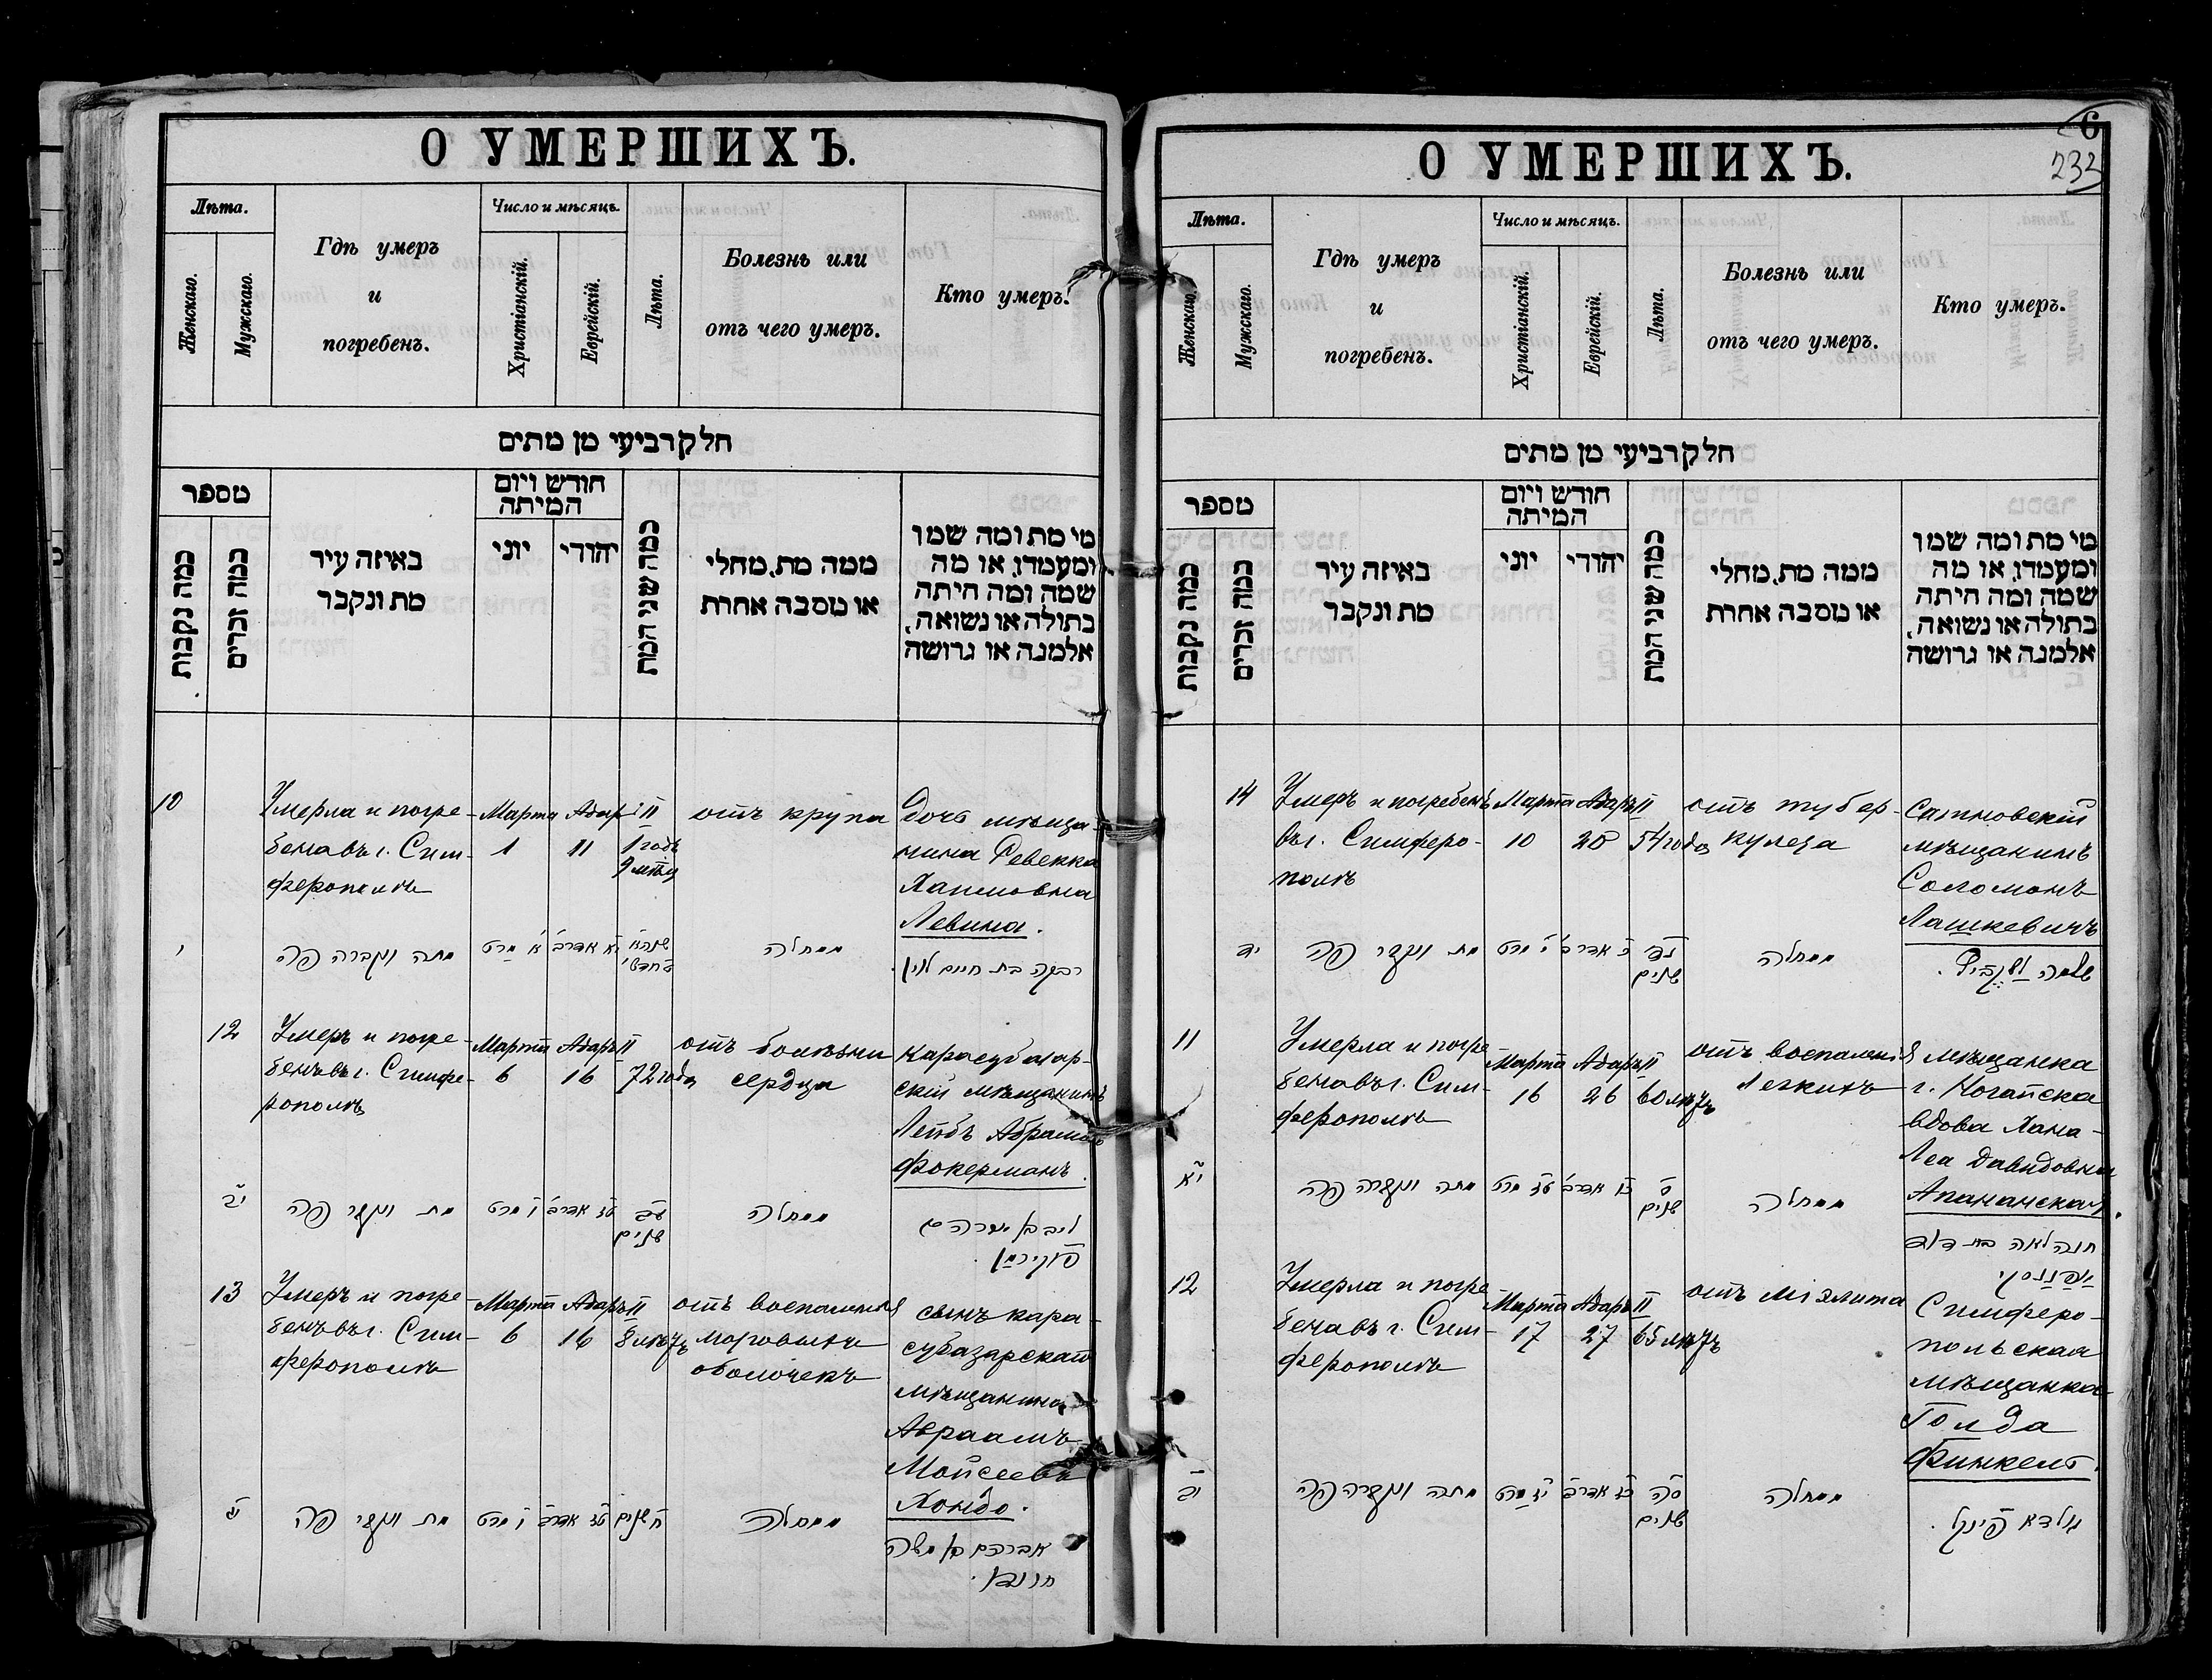 О УМЕРШИХЪ.
Лѣта.
Женскаго.
Мужскаго.
Гдѣ умеръ
и
погребенъ.
Число и мѣсяцъ.
Христіанскій.
Еврейскій.
Лѣта.
Болезнь или
отъ чего умеръ.
Кто умеръ.
חלק רביעי מן מתים
מספר
כמה נקבות
כמה זכרים
באיזה עיר
מת ונקבר
חודש ויום
המיתה
יוני
יהודי
כמה שני המת
ממה מת, מחלי
או מסבה אחרת
מי מת ומה שמו
ומעמדו, או מה
שמה ומה היתה
בתולה או נשואה,
אלמנה או גרושה
10
Умерла и погре-
бена въ г. Сим-
ферополѣ
Марта
1
Адаръ II
11
1 годъ
9 мѣсц
отъ крупа
Дочь мѣща-
нина Ревекка
Хаимовна
Левина.
י
מתה ונקברה פה
א מרט
יא אדר ב
ממחלה
רבקה בת חיים לוין.
12
Умеръ и погре-
бенъ въ г. Симфе-
рополѣ
Марта
6
Адаръ II
16
72 года
отъ болѣзни
сердца
Карасубазар-
скій мѣщанинъ
Лейбъ Абрамовъ
Фокерманъ.
יב
מת ונקבר פה
ו מרט
טז אדר ב
עב
שנים
ממחלה
ליב בן אברהם
פוקירמן.
13
Умеръ и погре-
бенъ въ г. Сим-
ферополѣ
Марта
6
Адаръ II
16
8 лѣтъ
отъ воспаленія
мозговыхъ
оболочекъ
сынъ кара-
субазарскаго
мѣщанина
Авраамъ
Мойсеевъ
Хондо.
יג
מת ונקבר פה
ו מרט
טז אדר ב
ח שנים
ממחלה
אברהם בן משה
О УМЕРШИХЪ.
6
232
Лѣта.
Женскаго.
Мужскаго.
Гдѣ умеръ
и
погребенъ.
Число и мѣсяцъ.
Христіанскій.
Еврейскій.
Лѣта.
Болезнь или
отъ чего умеръ.
Кто умеръ.
חלק רביעי מן מתים
מספר
כמה נקבות
כמה זכרים
באיזה עיר
מת ונקבר
חודש ויום
המיתה
יוני
יהודי
כמה שני המת
ממה מת, מחלי
או מסבה אחרת
מי מת ומה שמו
ומעמדו, או מה
שמה ומה היתה
בתולה או נשואה,
אלמנה או גרושה
14
Умеръ и погребенъ
въ г. Симферо-
полѣ
Марта
10
Адаръ II
20
54 года
отъ тубер-
кулеза
Сатновскій
мѣщанинъ
Соломонъ
Лашкевичъ
יד
מת ונקבר פה
י מרט
כ אדר ב
נד
שנים
ממחלה
שלמה לשקביץ.
11
Умерла и погре
бена въ г. Сим-
ферополѣ
Марта
16
Адаръ II
26
60 лѣтъ
отъ воспаленія
легкихъ
мѣщанка
г. Ногайска
вдова Хана-
Леа Давидовна
Апананская.
יא
מתה ונקברה פה
טז מרט
כו אדר ב
ס
שנים
ממחלה
חנה לאה בת דוד
12
Умерла и погре
бена въ г. Сим-
ферополѣ
Марта
17
Адаръ II
27
65 лѣтъ
отъ міэлита
Симферо-
польская
мѣщанка
Голда
Финкель.
יב
מתה ונקברה פה
יז מרט
כז אדר ב
סה
שנים
ממחלה
גולדא פינקל.